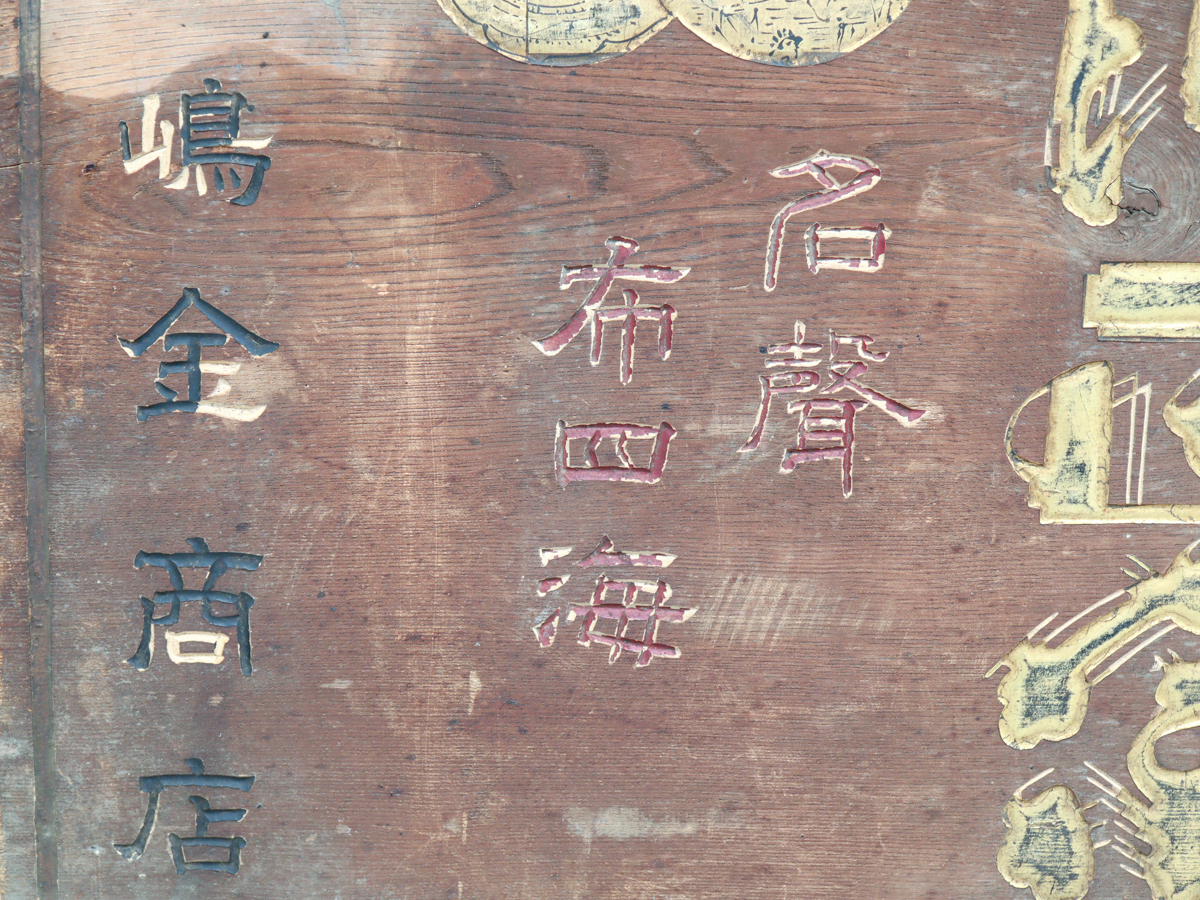 名聲
布四海
嶋金商店